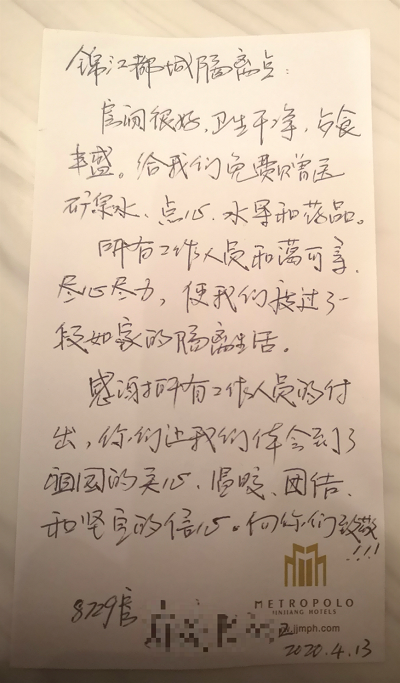 锦江都城隔离点：
房间很好，卫生干净，伙食
丰盛。给我们免费赠送
矿泉水、点心、水果和药品。
所有工作人员和蔼可亲、
尽心尽力，使我们渡过了一
段如家的隔离生活。
感谢所有工作人员的付
出，你们让我们体会到了
祖国的关心、温暖、团结、
和坚定的信心。向你们致敬
!!!
METROPOLO
JINJIANG HOTELS
.jjmph.com
8729房
2020.4.13